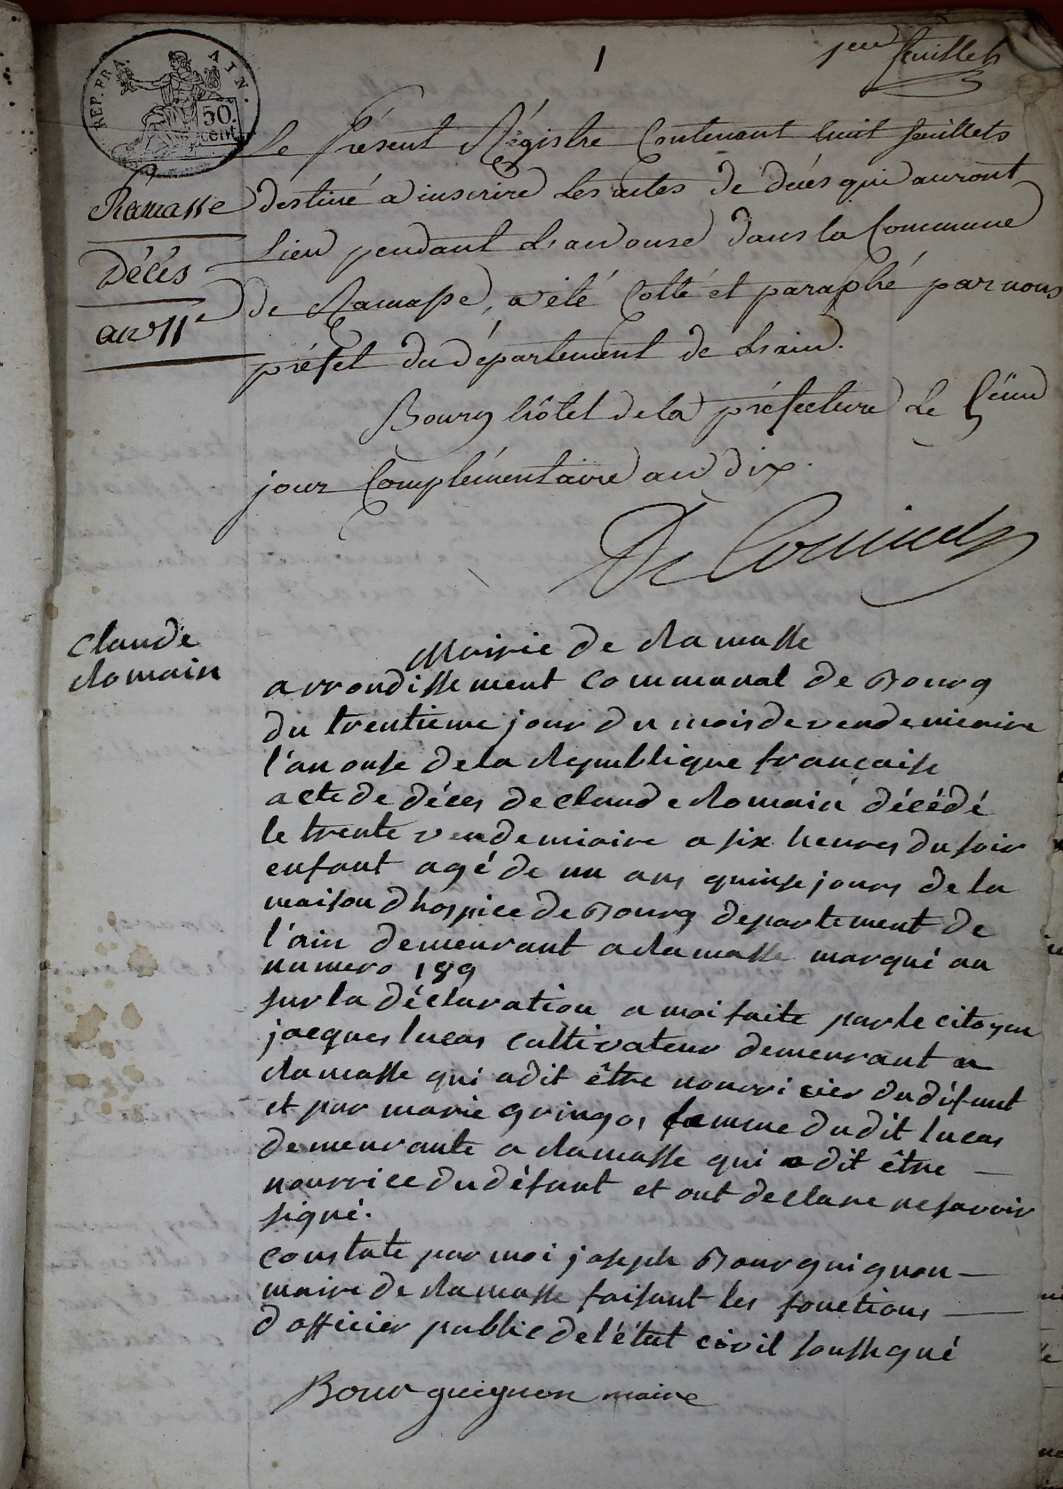 1
1er feuillet
REP. FRA.
AIN.
50.
cent
Ramasse
Décés
an 11e
Le Présent Régistre Contenant huit feuillets
destiné a inscrire les actes de décés qui auront
Lieu pendant L'an onze dans la Commune
de Ramasse, a été Cotté et paraphé par nous
préfet du département de L'ain.
Bourg hôtel de la préfecture le
jour Complémentaire an dix.
Claude
Romain
Mairie de Ramasse
arrondissement communal de Bourg
du trentieme jour du mois de vendemiaire
l'an onse de la Republique francaise
acte de déces de claude Romain décédé
le trente vendemiaire a six heures du soir
enfant agé de un ans quinse jours de la
maison d hospice de Bourg departement de
l'ain demeurant a Ramasse marqué au
numero 189
sur la déclaration a moi faite par le citoyen
jacques lucas cultivateur demeurant a
Ramasse qui a dit être nourricier du défunt
et par marie gringos femme du dit lucas
demeurante a Ramasse qui a dit être
nourrice du défunt et ont declare ne savoir
signé.
constate par moi joseph Bourguignon
maire de Ramasse faisant les fonctions
d officier public de l'état civil soussigné
Bourguignon maire